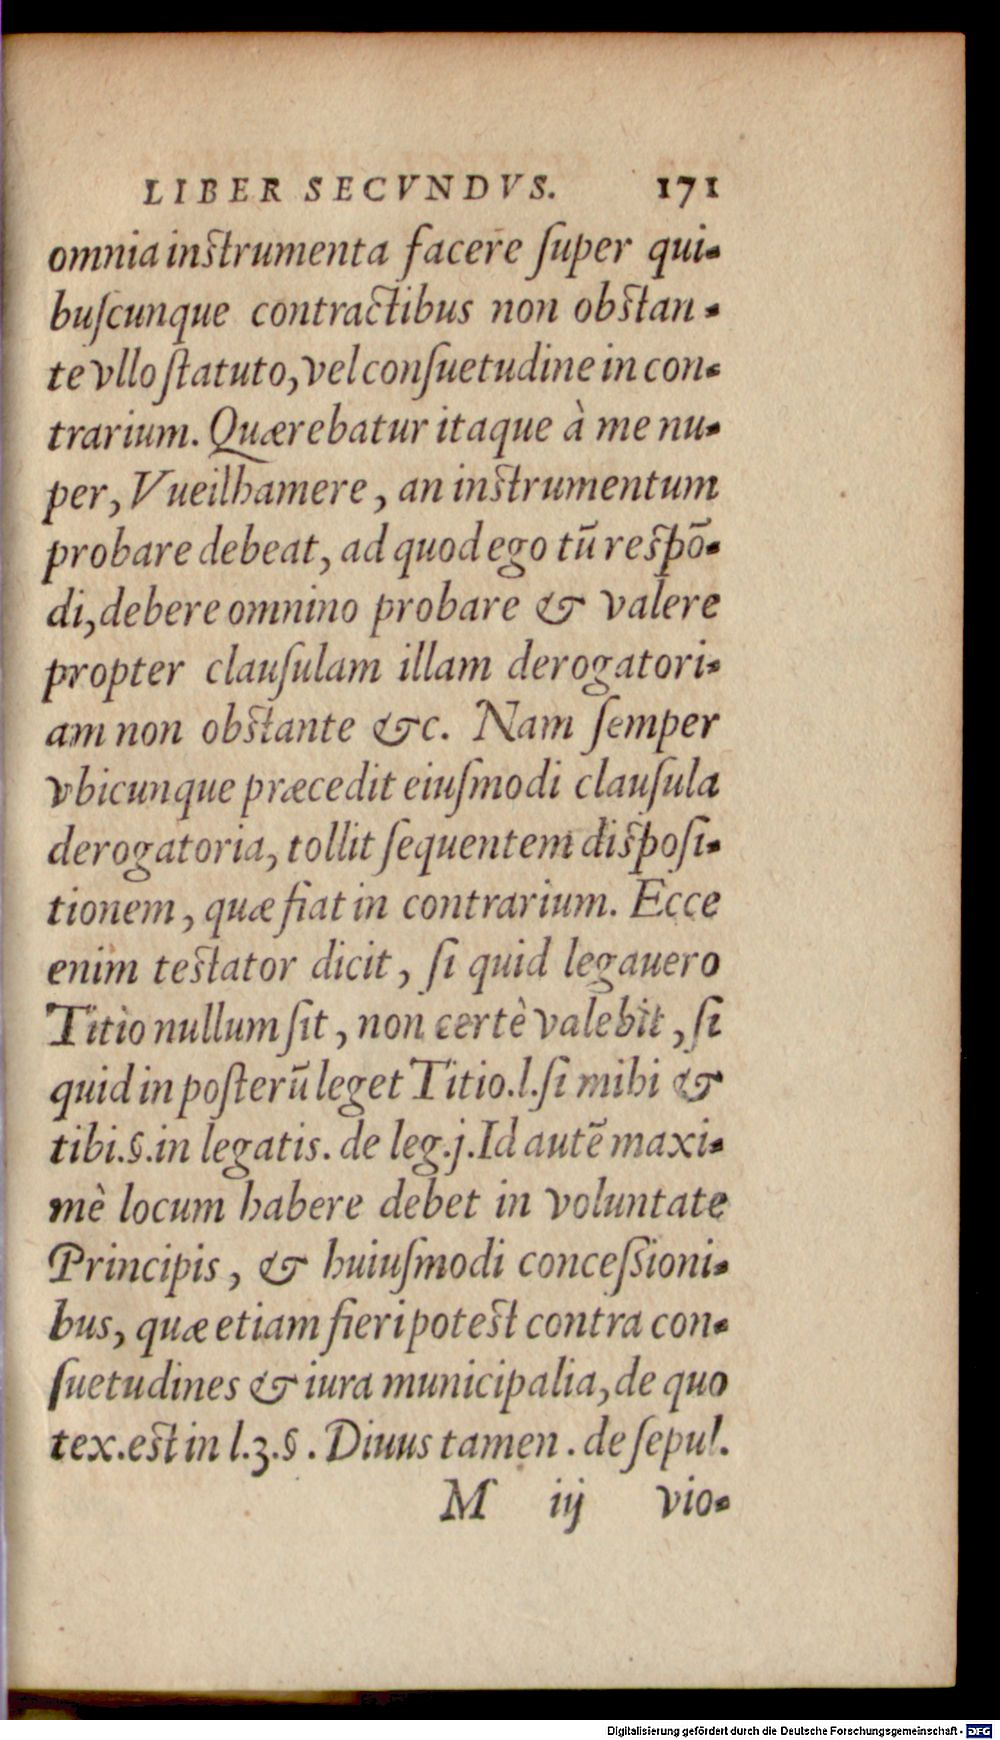 LIBER SECVNDVS. 171
omnia instrumenta facere ſuper qui-
buſcunque contractibus non obstan-
te vllo ſtatuto, vel conſuetudine in con-
trarium. Quærebatur itaque à me nu-
per, Vueilhamere, an instrumentum
probare debeat, ad quod ego tū respō-
di, debere omnino probare & valere
propter clauſulam illam derogatori-
am non obstante &c. Nam ſemper
vbicunque præcedit eiuſmodi clauſula
derogatoria, tollit ſequentem dispoſi-
tionem, quæ fiat in contrarium. Ecce
enim testator dicit, ſi quid legauero
Titio nullum ſit, non certè valebit, ſi
quid in poſterū leget Titio.l.ſi mihi &
tibi.§.in legatis. de leg.j.Id autē maxi-
mè locum habere debet in voluntate
Principis, & huiuſmodi conceßioni-
bus, quæ etiam fieri potest contra con-
ſuetudines & iura municipalia, de quo
tex.est in l.3.§. Diuus tamen. de ſepul.
M iij vio-
Digitalisierung gefördert durch die Deutsche Forschungsgemeinschaft - DFG